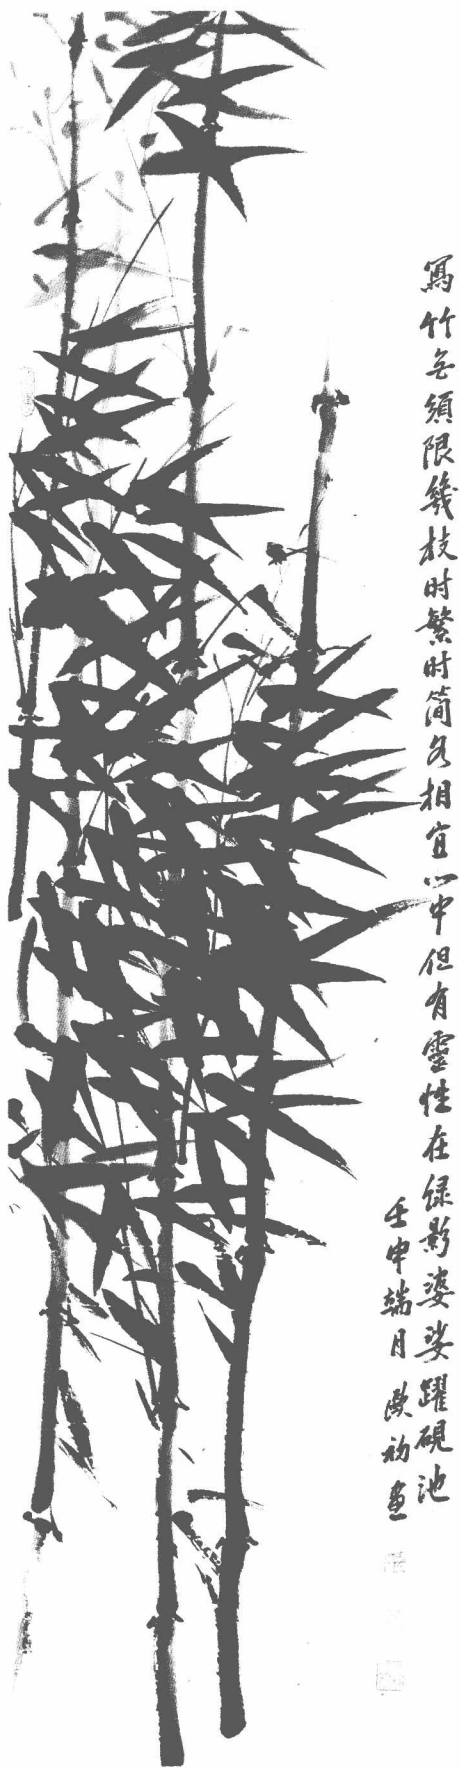 寫竹無須限幾枝时繁时简各相宜心中但有靈性在绿影婆娑躍硯池
壬申端月 歐初畫